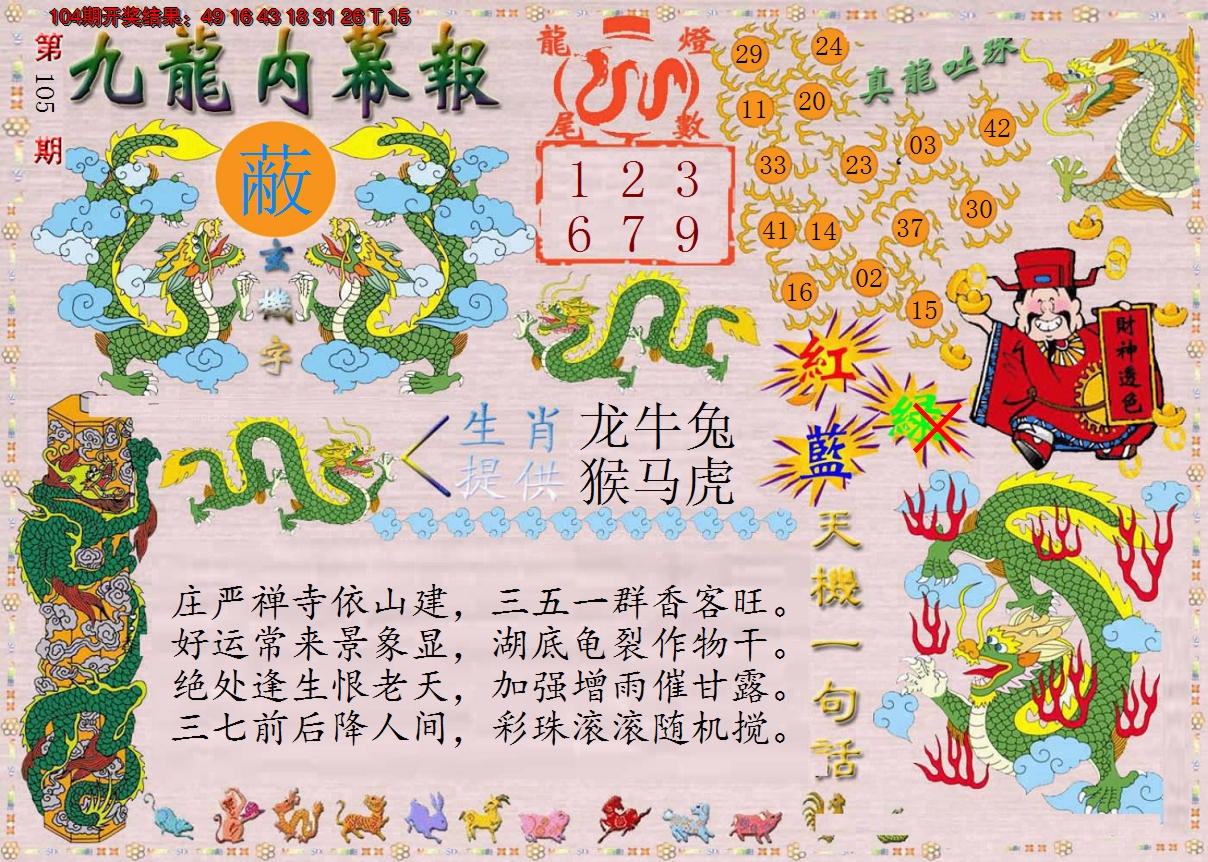 104期开奖结果：49 16 43 18 31 26 T 15
第105期
九龍内幕報
蔽
玄機字
龍燈
尾數
1 2 3
6 7 9
真龍吐珠
29 24
11 20
33 23 03 42
41 14 37 30
16 02 15
紅
綠
藍
財神透色
生肖 龙牛兔
提供 猴马虎
天機一句话
庄严禅寺依山建，三五一群香客旺。
好运常来景象显，湖底龟裂作物干。
绝处逢生恨老天，加强增雨催甘露。
三七前后降人间，彩珠滚滚随机搅。